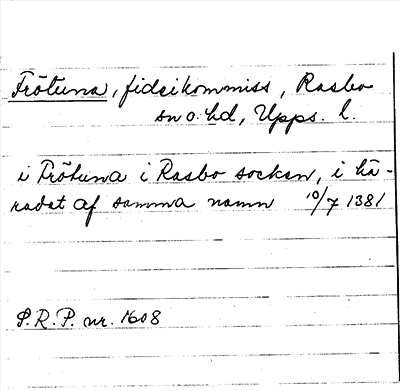 Frötuna, fideikommiss, Rasbo
sn o. hd, Upps. l.
i Frötuna i Rasbo socken, i hä-
radet af samma namn 10/7 1381
S.R.P. nr. 1608